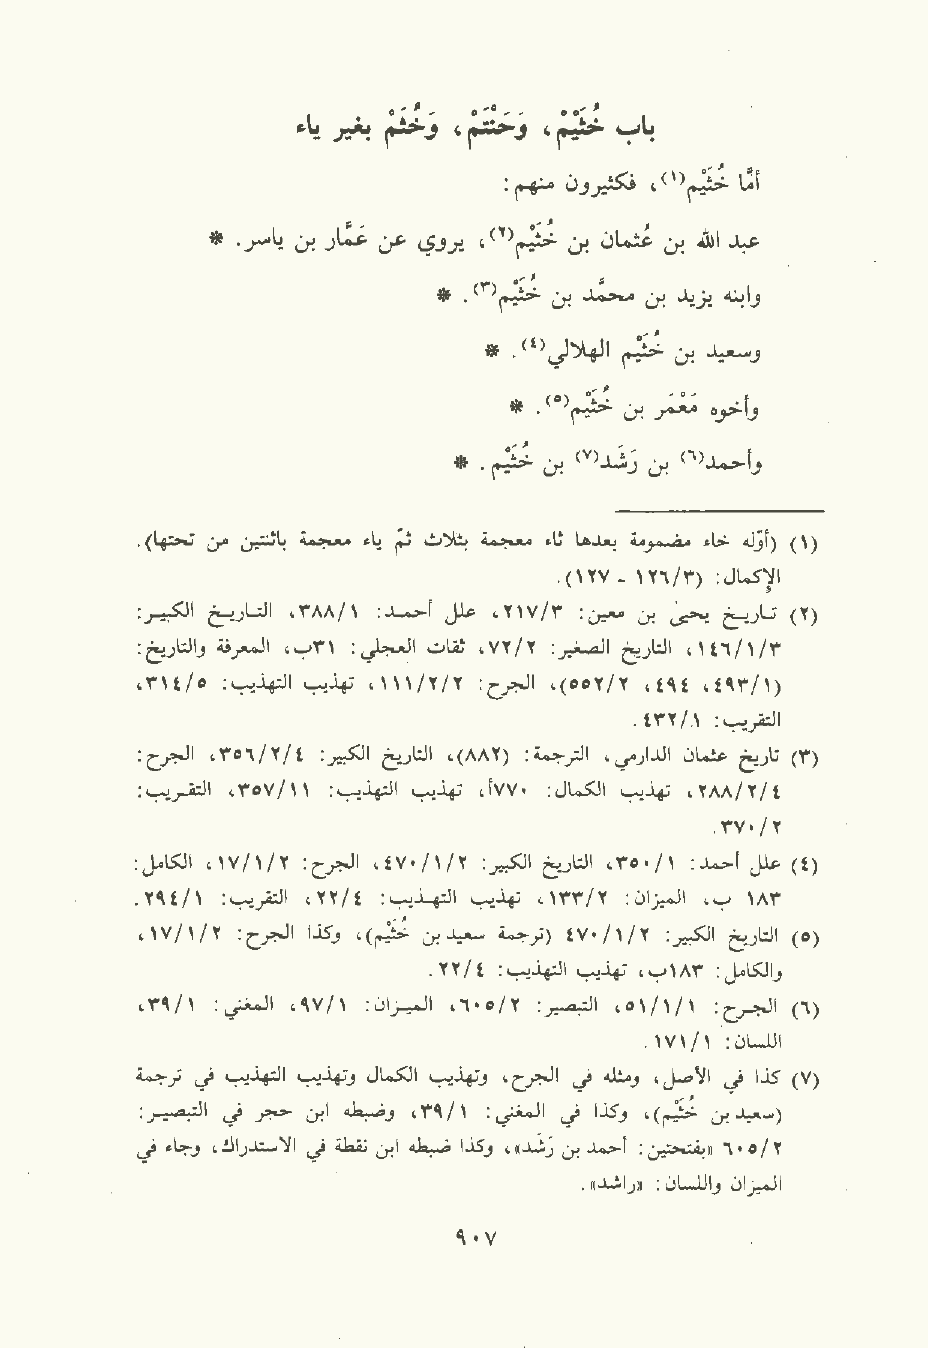 باب خُثَيْم، وَحَنْتَم، وَخُثَم بغير ياء
أمّا خُثَيْم(١)، فكثيرون منهم:
عبد الله بن عُثمان بن خُثَيْم(٢)، يروي عن عَمَّار بن ياسر. *
وابنه يزيد بن محمّد بن خُثَيْم(٣). *
وسعيد بن خُثَيْم الهلالي(٤). *
وأخوه مَعْمَر بن خُثَيْم(٥). *
وأحمد(٦) بن رَشَد(٧) بن خُثَيْم. *
(١) (أوّله خاء مضمومة بعدها ثاء معجمة بثلاث ثمّ ياء معجمة باثنتين من تحتها).
الإكمال: (٣/١٢٦ - ١٢٧).
(٢) تاريخ يحيى بن معين: ٢١٧/٣، علل أحمد: ٣٨٨/١، التاريخ الكبير:
١٤٦/١/٣، التاريخ الصغير: ٧٢/٢، ثقات العجلي: ٣١ب، المعرفة والتاريخ:
(٤٩٣/١، ٤٩٤، ٥٥٢/٢)، الجرح: ١١١/٢/٢، تهذيب التهذيب: ٣١٤/٥،
التقريب: ٤٣٢/١.
(٣) تاريخ عثمان الدارمي، الترجمة: (٨٨٢)، التاريخ الكبير: ٣٥٦/٢/٤، الجرح:
٢٨٨/٢/٤، تهذيب الكمال: ٧٧٠أ، تهذيب التهذيب: ٣٥٧/١١، التقريب:
٣٧٠/٢.
(٤) علل أحمد: ٣٥٠/١، التاريخ الكبير: ٤٧٠/١/٢، الجرح: ١٧/١/٢، الكامل:
١٨٣ ب، الميزان: ١٣٣/٢، تهذيب التهذيب: ٢٢/٤، التقريب: ٢٩٤/١.
(٥) التاريخ الكبير: ٤٧٠/١/٢ (ترجمة سعيد بن خُثَيْم)، وكذا الجرح: ١٧/١/٢،
والكامل: ١٨٣ب، تهذيب التهذيب: ٢٢/٤.
(٦) الجرح: ٥١/١/١، التبصير: ٦٠٥/٢، الميزان: ٩٧/١، المغني: ٣٩/١،
اللسان: ١٧١/١.
(٧) كذا في الأصل، ومثله في الجرح، وتهذيب الكمال وتهذيب التهذيب في ترجمة
(سعيد بن خُثَيْم)، وكذا في المغني: ٣٩/١، وضبطه ابن حجر في التبصير:
٦٠٥/٢ «بفتحتين: أحمد بن رَشَد»، وكذا ضبطه ابن نقطة في الاستدراك، وجاء في
الميزان واللسان: «راشد».
٩٠٧